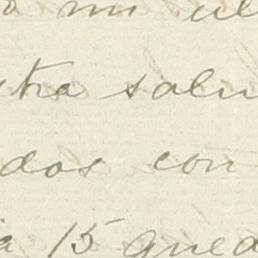 mi ul
stra salu
dos con
a 15 qued